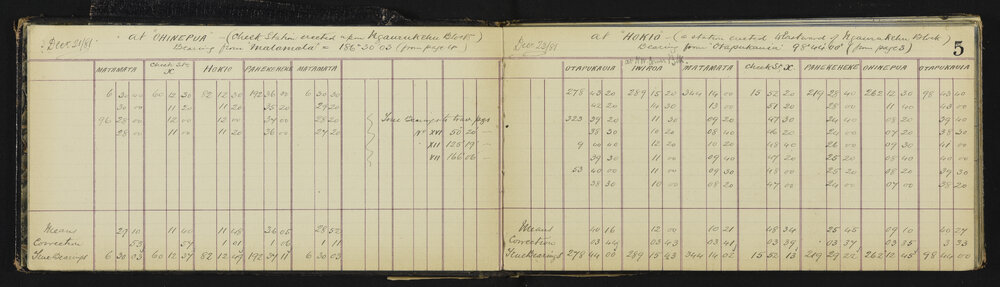 Decr 21/81 at "OHINEPUA" - (Check Station erected upon Ngaurukehu Block)
Bearing from "Matamata" = 186° 30' 03" (from page 4)
MATAMATA Check Stn X HOKIO PAHEKEHEKE MATAMATA
6 30 00 60 12 30 82 12 30 192 36 00 6 30 30
30 00 11 20 11 20 35 20 29 20
96 28 00 12 00 12 00 37 00 28 20
28 00 11 00 11 20 36 00 27 20
True bearings to trav. pegs
No XVI 50° 20' -
XII 125° 19' -
VII 166° 06' -
Means 29 10 11 40 11 48 36 05 28 52
Correction 53 57 1 01 1 06 1 11
True Bearings 6 30 03 60 12 37 82 12 49 192 37 11 6 30 03
5
Decr 23/81 at "HOKIO" - (a station erected Westward of Ngaurukehu Block)
Bearing from "Otapukauia" 98° 44' 00" (from page 3)
OTAPUKAUIA INIROA MATAMATA Check St. X PAHEKEHEKE OHINEPUA OTAPUKAUIA
278 43 20 289 15 20 344 14 00 15 52 20 219 28 40 262 12 30 98 43 40
42 20 14 30 13 00 51 20 28 00 11 40 43 00
323 39 20 11 30 09 20 47 30 24 40 08 20 39 40
38 30 10 20 08 40 46 20 24 00 07 20 38 30
9 00 40 12 20 10 20 48 40 26 00 09 30 41 00
39 30 11 00 09 40 47 20 25 20 08 40 40 00
53 40 00 11 00 09 20 48 00 25 20 08 20 39 30
38 30 10 00 08 20 47 00 24 00 07 00 38 20
Means 40 16 12 00 10 21 48 34 25 45 09 10 40 27
Corrections 03 44 03 43 03 41 03 39 03 37 03 35 3 33
True Bearings 278 44 00 289 15 43 344 14 02 15 52 13 219 29 22 262 12 45 98 44 00